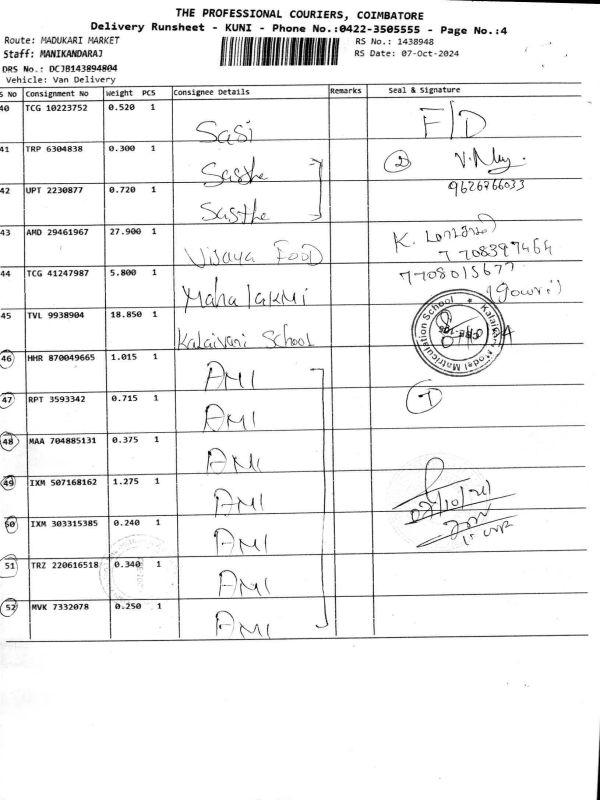 THE PROFESSIONAL COURIERS, COIMBATORE
Delivery Runsheet - KUNI - Phone No.:0422-3505555 - Page No.:4
Route: MADUKARI MARKET RS No.: 1438948
Staff: MANIKANDARAJ RS Date: 07-Oct-2024
DRS No.: DCJB143894804
Vehicle: Van Delivery
S No Consignment No Weight PCS Consignee Details Remarks Seal & Signature
40 TCG 10223752 0.520 1 Sasi F/D
41 TRP 6304838 0.300 1 Sasthe 2
42 UPT 2230877 0.720 1 Sasthe 9626766033
43 AMD 29461967 27.900 1 Vijaya Food K. 7708397464
44 TCG 41247987 5.800 1 Mahalakmi 7708015677 (Gowri)
45 TVL 9938904 18.850 1 Kalaivani School Kalaivani Model Matriculation School
46 HHR 870049665 1.015 1 AMI
47 RPT 3593342 0.715 1 AMI 7
48 MAA 704885131 0.375 1 AMI
49 IXM 507168162 1.275 1 AMI
50 IXM 303315385 0.240 1 AMI
51 TRZ 220616518 0.340 1 AMI
52 MVK 7332078 0.250 1 AMI